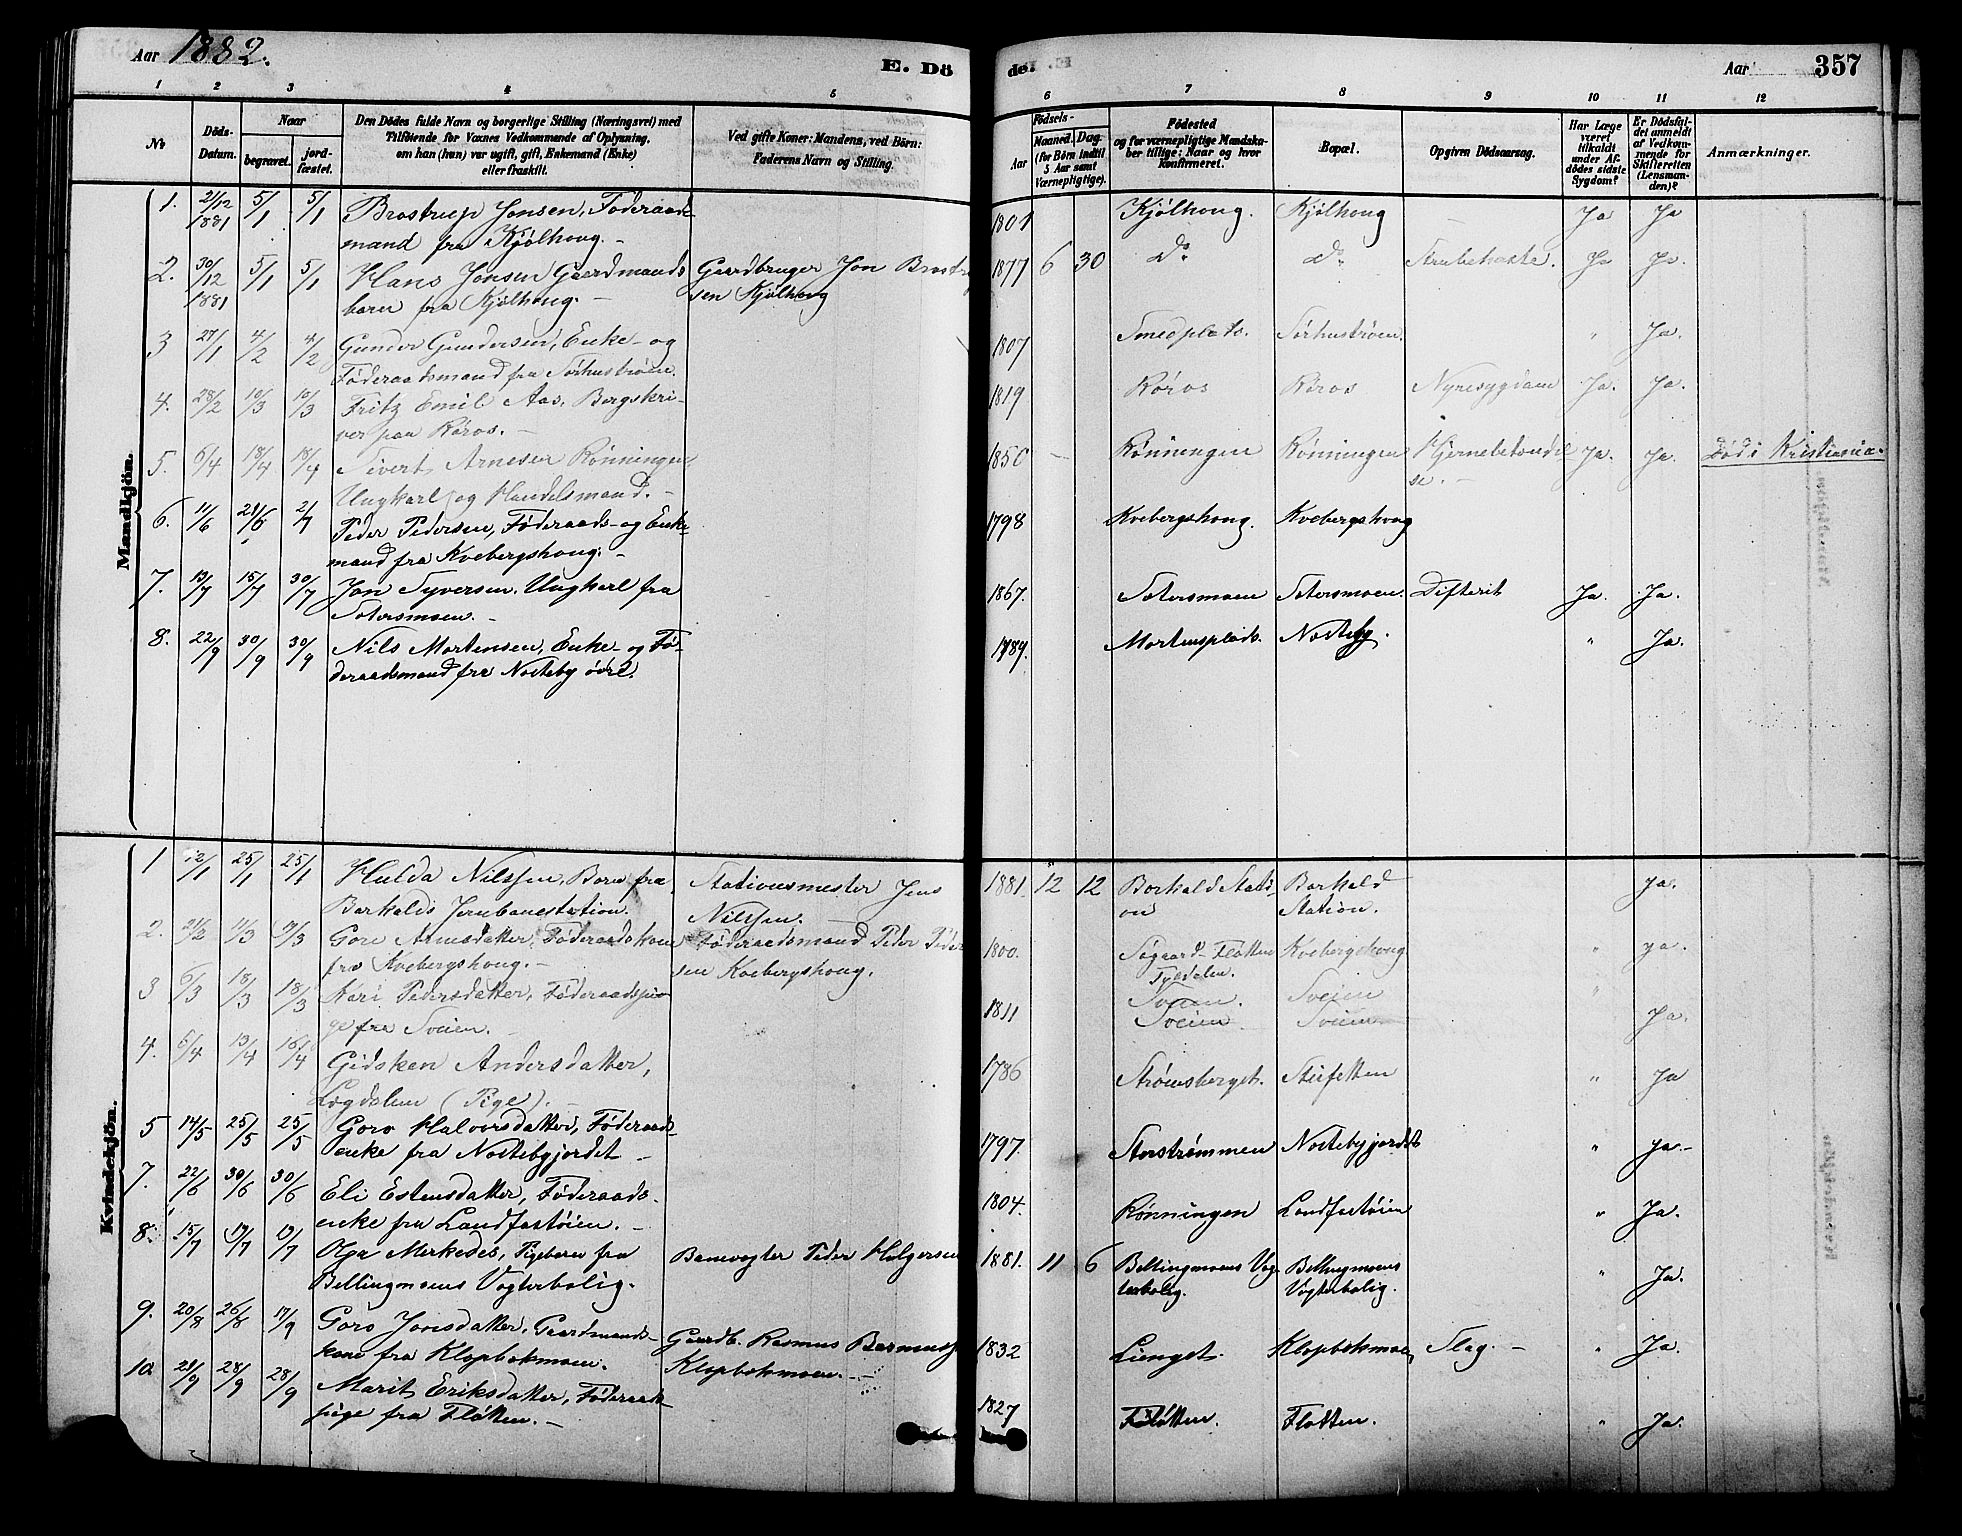 Aar 1882.
E. Dö
de.
Aar
357
1 2 3 4 5 6 7 8 9 10 11 12
No
Döds-Datum.
Naar
begravet.
jord-fæstet.
Den Dödes fulde Navn og borgerlige Stilling (Næringsvei) med
Tilföiende for Voxnes Vedkommende af Oplysning,
om han (hun) var ugift, gift, Enkemand (Enke)
eller fraskilt.
Ved gifte Koner: Mandens, ved Börn:
Faderens Navn og Stilling.
Födsels-
Aar
Maaned. Dag.
(for Börn indtil
5 Aar samt
Værnepligtige).
Födested
og for værnepligtige Mandska-
ber tillige: Naar og hvor
Konfirmeret.
Bopæl.
Opgiven Dödsaarsag.
Har Læge
været
tilkaldt
under Af-
dödes sidste
Sygdom?
Er Dödsfal-
det anmeldt
af Vedkom-
mende for
Skifteretten
(Lensman-
den)?
Anmærkninger.
Mandkjön.
1. 21/12 1881 5/1 5/1 Brostrup Jonsen, Føderaads-
mand fra Kjølhoug. -
1801 Kjølhoug. Kjølhoug - Ja Ja
2. 30/12 1881 5/1 5/1 Hans Jonsen Gaardmands
barn fra Kjølhoug. -
Gaardbruger Jon Brostrup
sen Kjølhoug
1877 6 30 Do Do Strubehoste. Ja Ja.
3 27/1 4/2 4/2 Gunder Gundersen, Enke- og
Føderaadsmand fra Sørhustrøen.
1807 Smedplads. Sørhustrøen. " Ja.
4. 28/2 10/3 10/3 Fritz Emil Aas, Bergskri-
ver paa Røros. -
1819 Røros Røros Nyresygdom Ja. Ja.
5. 6/4 18/4 18/4 Sivert Arnesen Rønningen
Ungkarl og Handelsmand. -
1850 - Rønningen Rønningen Hjernebetændel
se. - Ja. Ja. Død i Kristiania.
6. 11/6 21/6 2/7 Peder Pedersen, Føderaads- og Enke-
mand fra Kvebergshoug. -
1798 Kvebergshoug. Kvebergshoug
7. 13/7 15/7 30/7 Jon Syversen, Ungkarl fra
Sætersmoen. -
1867. Sætersmoen Sætersmoen. Difterit Ja. Ja.
8. 22/9 30/9 30/9 Nils Mortensen, Enke- og Fø-
deraadsmand fra Nosteby øvre.
1789. Mortensplads. Nosteby. " Ja.
Kvindekjön.
1 12/1 25/1 25/1 Hulda Nilssen, Barn fra
Barkalds Jernbanestation.
Stationsmester Jens
Nilssen. -
1881. 12 12 Barkald Stati-
on Barkald
Station. ja.
2. 21/2 11/3 11/3 Gore Arnesdatter, Føderaadskone
fra Kvebergshoug. -
Føderaadsmand Peder Peder
sen Kvebergshoug.
1800. Søgaard-Fløtten
Tyldalen. Kvebergshoug " ja.
3 6/3 18/3 18/3 Kari Pedersdatter, Føderaadspi-
ge fra Sveien. -
1811 Sveien. Sveien "
Sveien Sveien Ja.
4. 6/4 13/4 16/4 Gidsken Andersdatter,
Løgdalen (Pige). -
1786 Strømsberget. Steifetten " Ja
5 14/5 25/5 25/5 Goro Halvorsdatter, Føderaads-
enke fra Nostebyjordet -
1797. Storstrømmen Nostebyjordet " ja. -
7. 22/6 30/6 30/6 Eli Estensdatter, Føderaads-
enke fra Landfastøien. -
1804. Rønningen Landfastøien " Ja.
8. 15/7 17/7 17/7 Olga Merkedes, Pigebarn fra
Bellingmoens Vogterbolig.
Banevogter Peder Holgersen
1881. 11 6 Bellingmoens Vog-
terbolig. Bellingmoens
Vogterbolig. " Ja.
9. 20/8 26/8 17/9 Goro Jonsdatter, Gaardmands-
kone fra Klopbakmoen.
Gaardb. Rasmus
Klopbakmoen. -
1832 Lienget. Klopbakmoen, Slag. - " Ja.
10. 21/9 28/9 28/9 Marit Eriksdatter, Føderaads-
pige fra Fløtten. -
1827 Fløtten. Fløtten. " Ja.